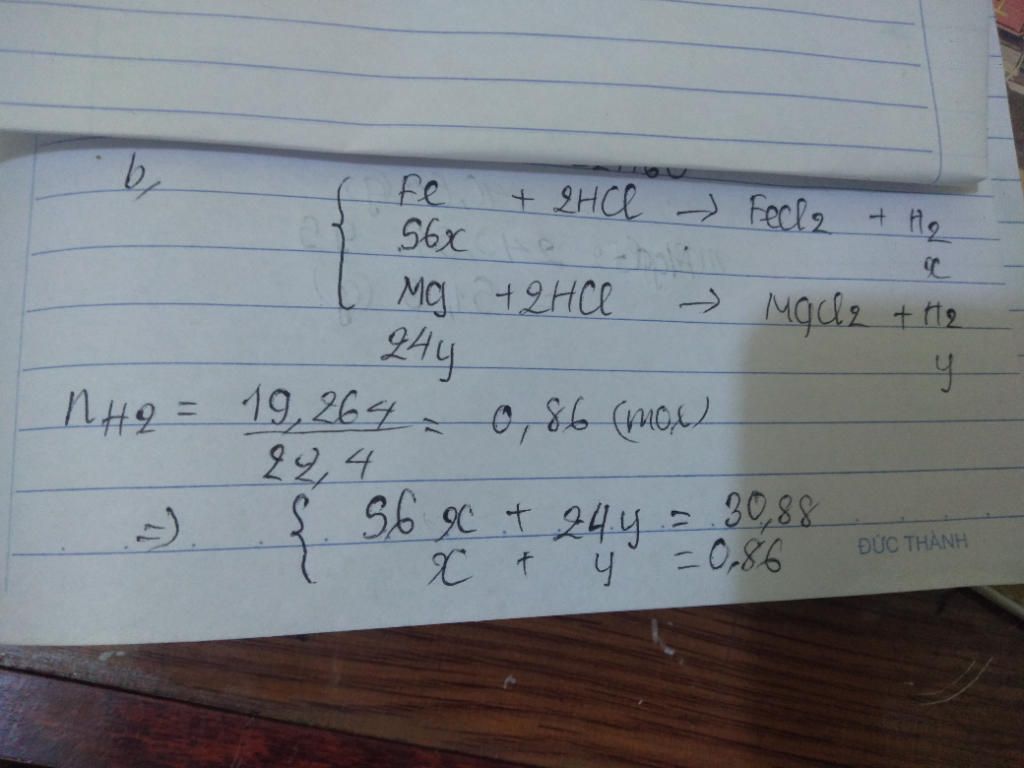 b,
Fe + 2HCl → FeCl2 + H2
56x x
Mg + 2HCl → MgCl2 + H2
24y y
nH2 = 19,264 / 22,4 = 0,86 (mol)
=> { 56x + 24y = 30,88
x + y = 0,86
ĐỨC THÀNH